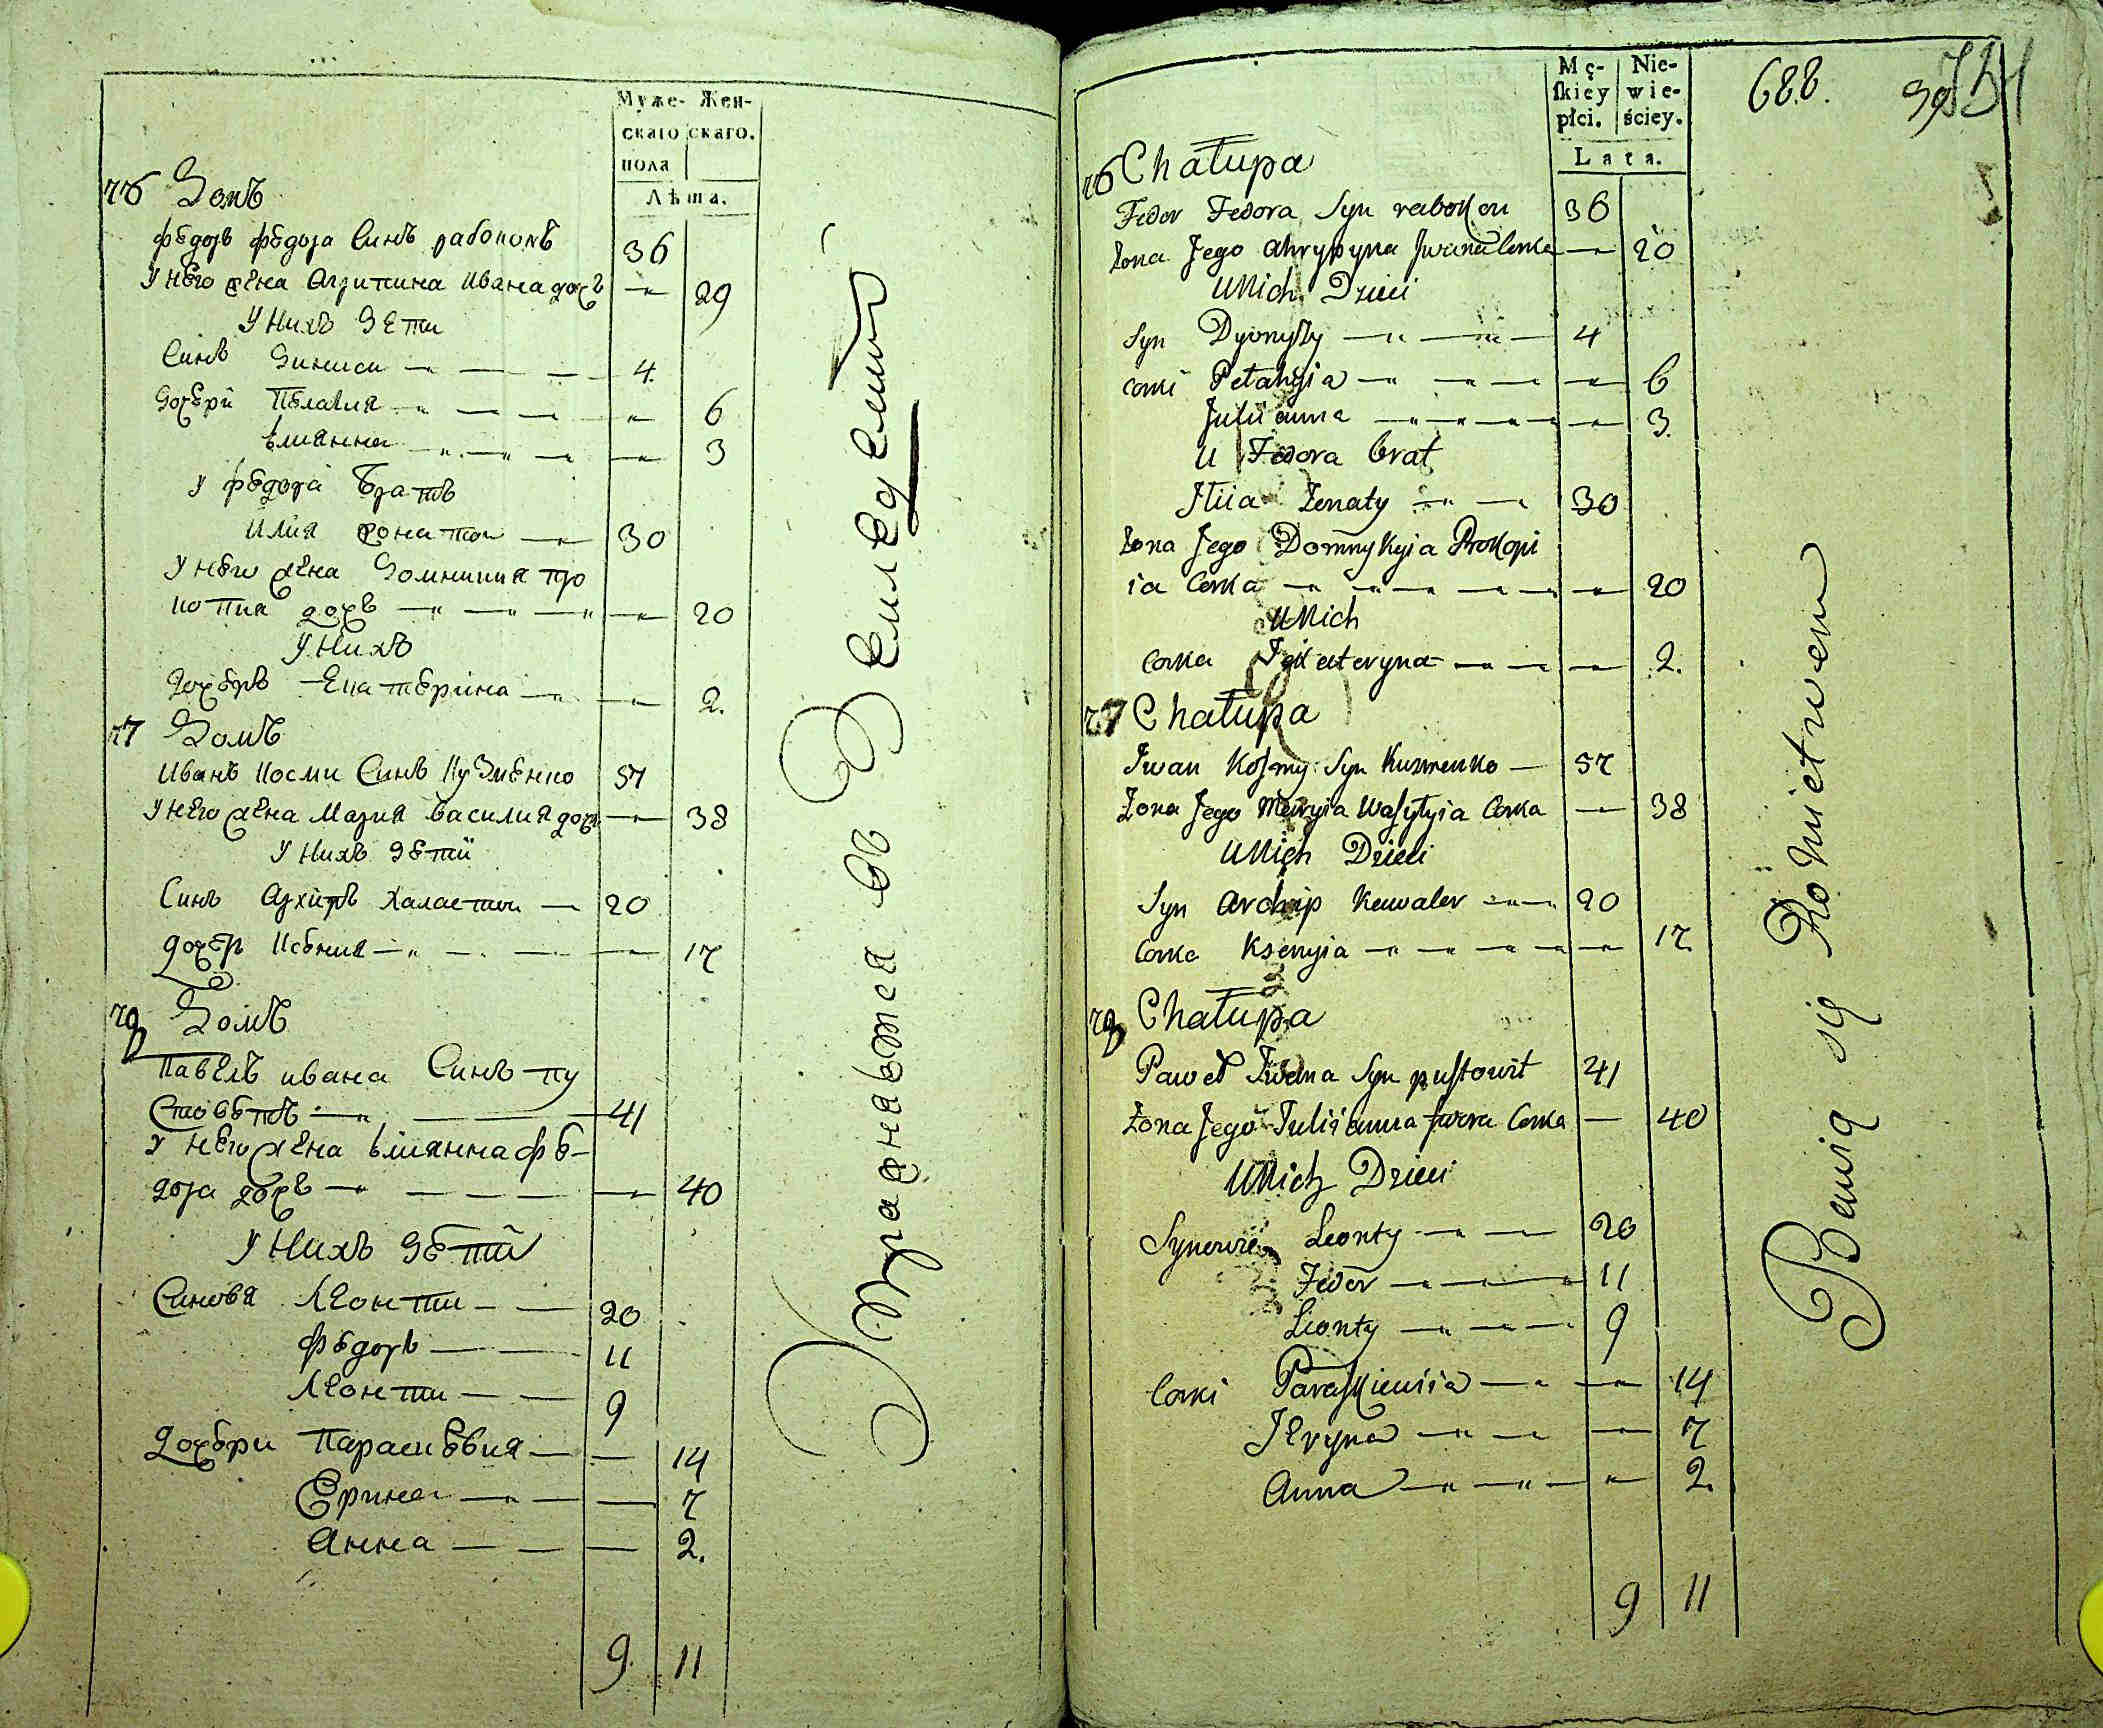 Муже- Жен-
скаго скаго.
пола
Лѣта.
76 Домъ
Федоръ Федора Синъ рабоконъ 36
У него жена Агрипина Ивана дочъ — 29
У нихъ дети
Синъ Диниси — 4.
Дочери Пелагия — 6
Влианна — 3
У Федора Братъ
Илия жонати — 30
У него жена Домникия про
копия дочъ — 20
У нихъ
Дочеръ Екатерина — 2.
77 Домъ
Иванъ Косми Синъ Кузменко 57
У него жена Мария Василия дочъ — 38
У нихъ дети
Синъ Архипъ Халасти — 20
дочеръ Ксения — 17
78 Домъ
Павелъ ивана Синъ пу
стовѣтъ — 41
У него жена Влианна фе-
дора дочъ — 40
У нихъ дети
Синовя Леонти — 20
Федоръ — 11
Леонти — 9
Дочери Параскевия — 14
Ерина — 7
Анна — 2.
9 11
Упражняются въ Земледелии
Mę- Nie-
skiey wie-
płci. ściey.
Lata.
688.
76 Chałupa
Fedor Fedora Syn rabokon 36
Żona Jego Ahrypyna Jwana Corka — 20
U Nich Dzieci
Syn Dyonyszy — 4
Corki Pelahyia — 6
Julianna — 3.
U Fedora brat
Jlia Żenaty — 30
Żona Jego Domnykyia Prokopi
ia Corka — 20
U Nich
Corka Jekateryna — 2.
77 Chałupa
Jwan Kosmy Syn Kuzmenko — 57
Żona Jego Maryia Wasylyia Corka — 38
U Nich Dzieci
Syn Archip Kawaler — 20
Corka Ksenyia — 17.
78 Chałupa
Paweł Jwana Syn pustowit 41
Żona Jego Julianna Corka — 40
U Nich Dzieci
Synowie Leonty — 20
Fedor — 11
Lionty — 9
Corki Paraskiewiia — 14
Jeryna — 7
Anna — 2.
9 11
Bawią się Rolnictwem